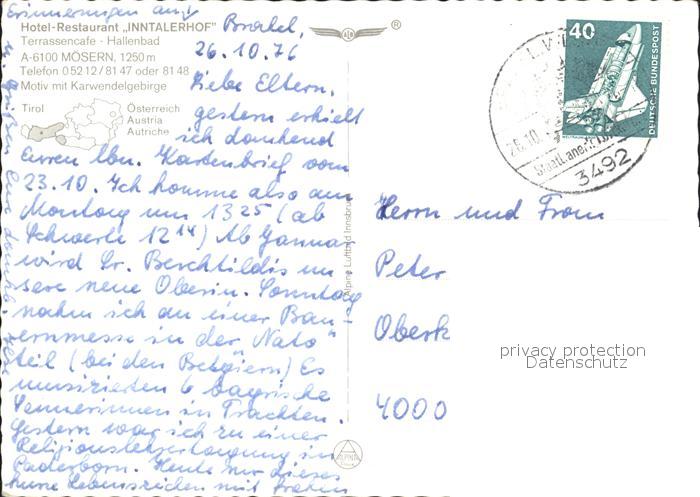 Erinnerungen an
Hotel-Restaurant „INNTALERHOF"
Terrassencafe - Hallenbad
A-6100 MÖSERN, 1250 m
Telefon 0 52 12 / 81 47 oder 81 48
Motiv mit Karwendelgebirge
Tirol
Österreich
Austria
Autriche
Brakel,
26.10.76
Liebe Eltern,
gestern erhielt
ich dankend
Euren lbn. Kartenbrief vom
23.10. Ich komme also am
Montag um 13 25 (ab
Schwerte 12 14) Ab Januar
wird Sr. Berchtildis un
sere neue Oberin. Sonntag
nahm ich an einer Bau-
ernmesse in der "Nato"
teil (bei den Belgiern) Es
musizierten 6 bayrische
Sennerinnen in Trachten.
Gestern war ich zu einer
Religionslehrertagung in
Paderborn. Heute nur dieses
kurze Lebenszeichen mit
Alpine Luftbild Innsbruck
®
40
DEUTSCHE BUNDESPOST
26.10.
Staatl. anerk.
3492
Herrn und Frau
Peter
Oberk
4000
privacy protection
Datenschutz
ALPINA